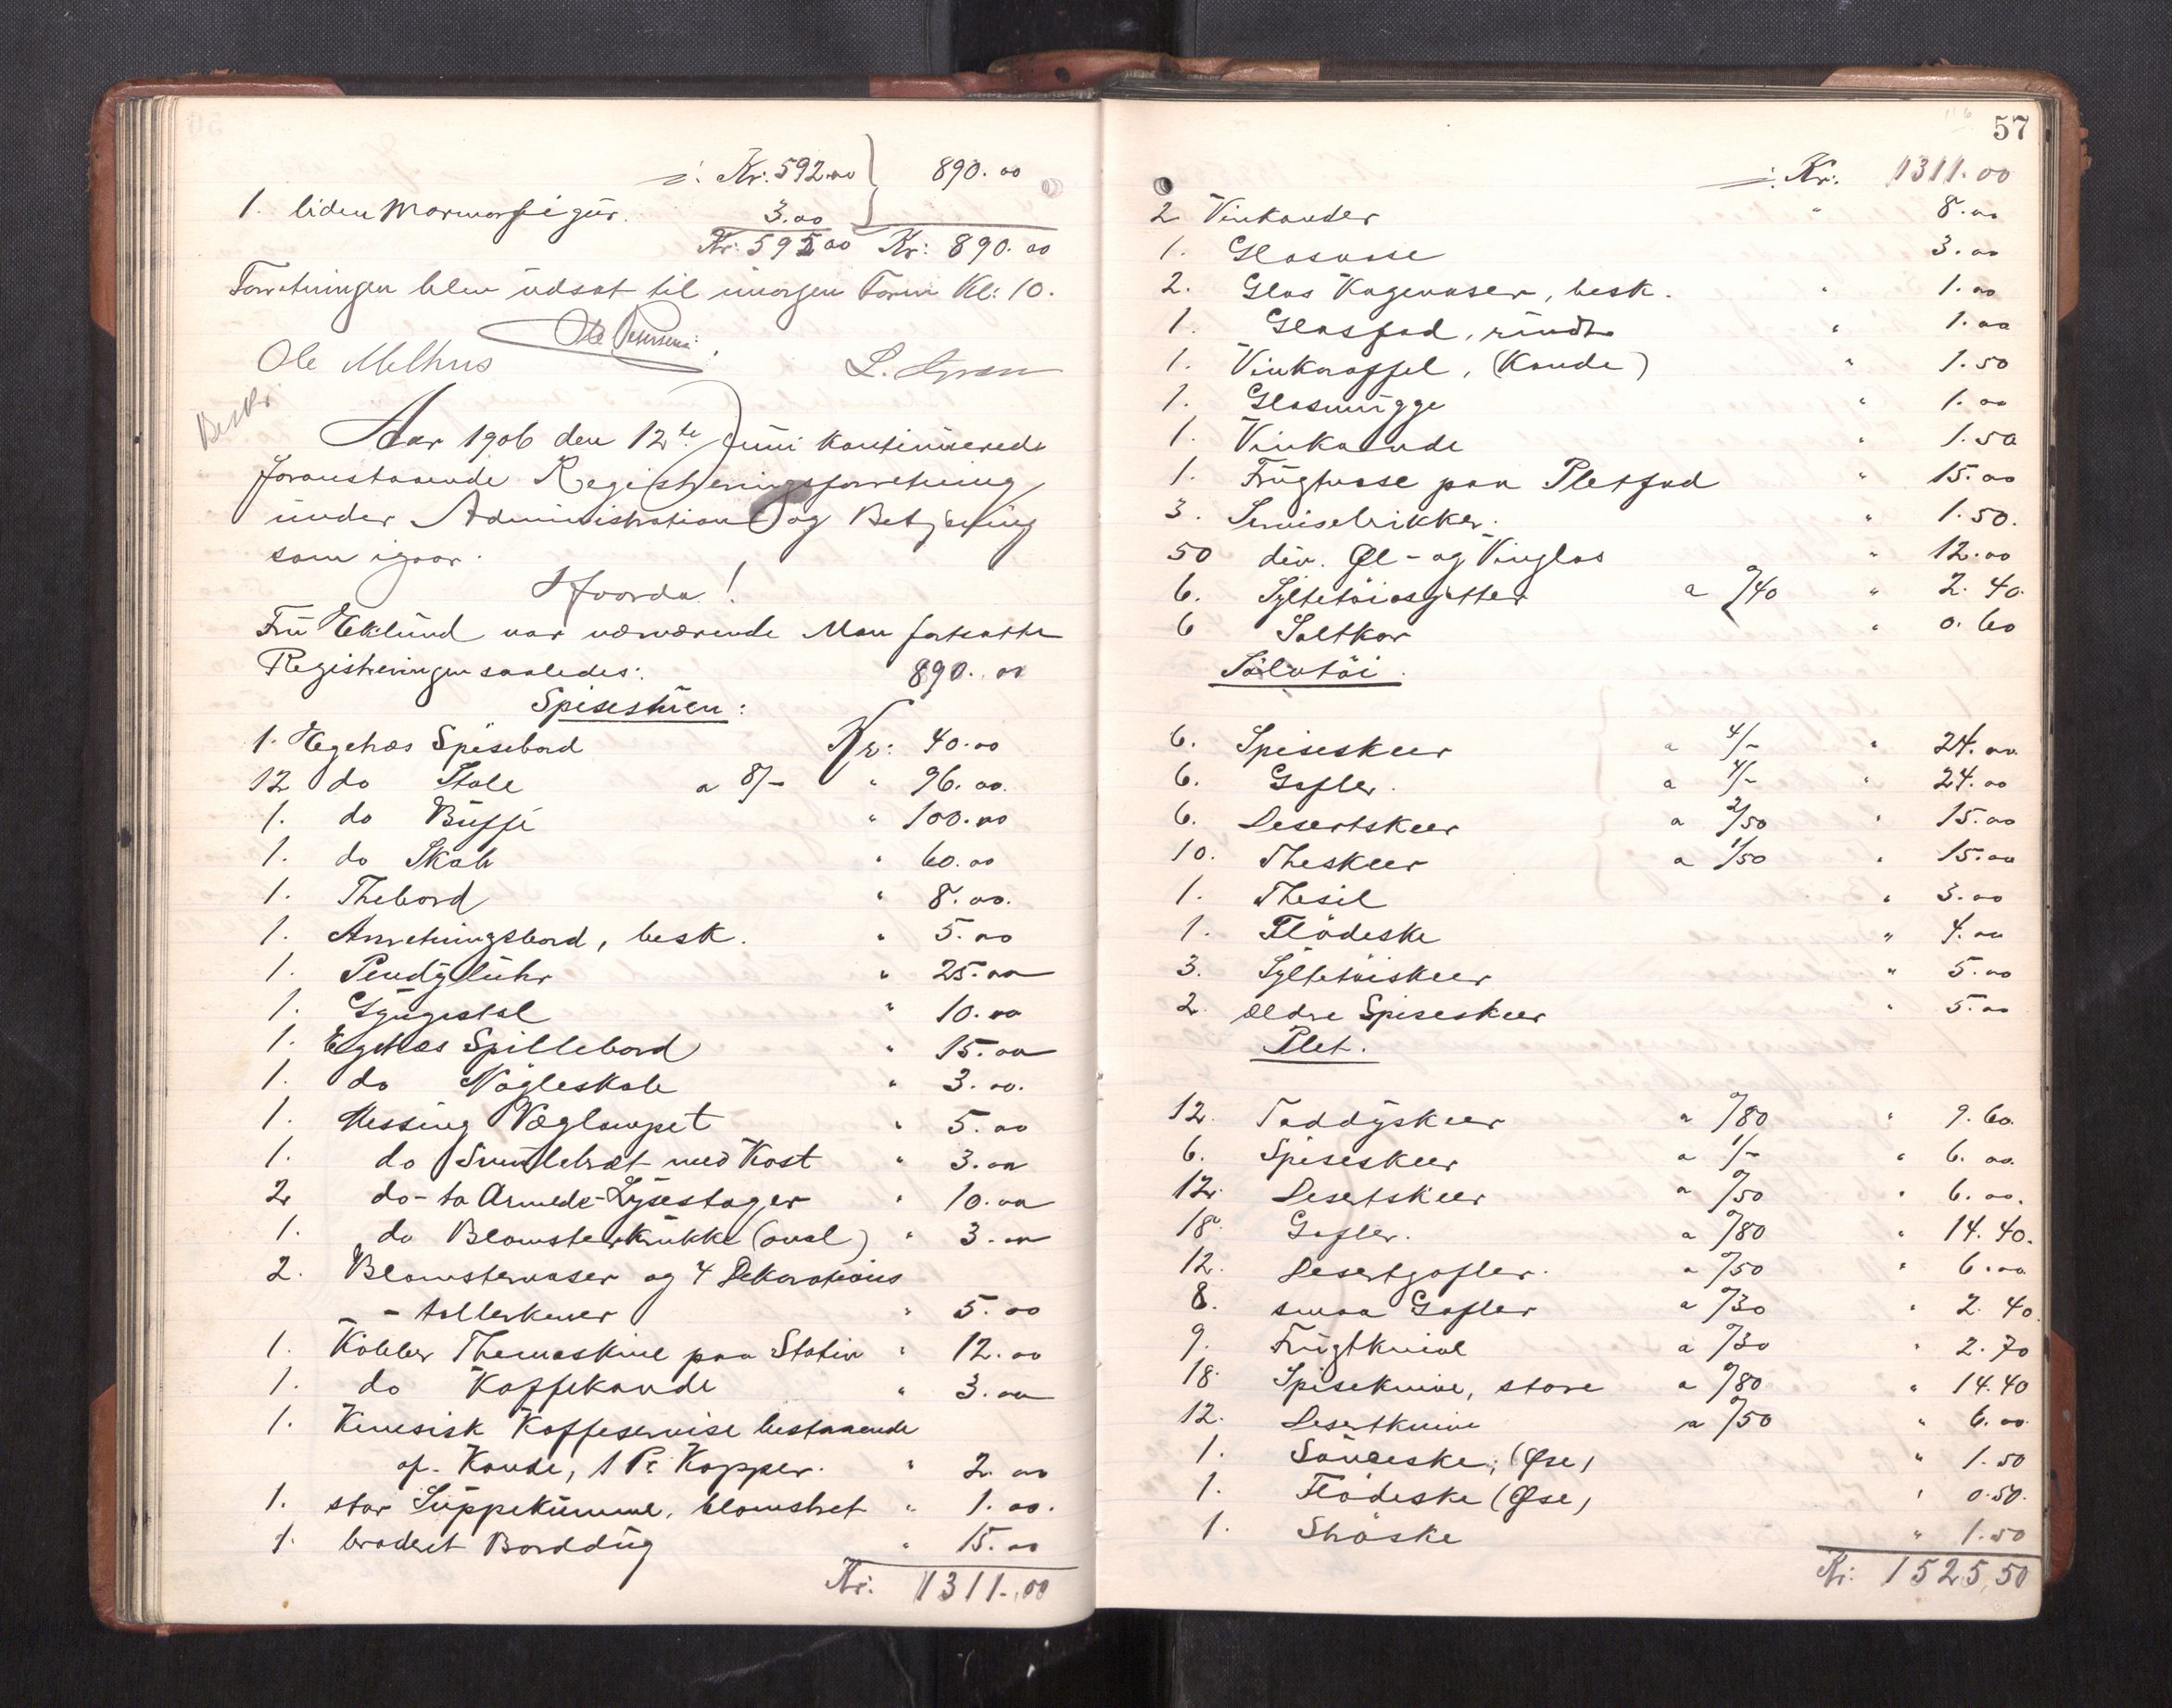 ÷ Kr: 592.00 } 890.00
1. liden Marmorfigur. 3.00
Kr: 595.00 Kr: 890.00
Forretningen blev udsat til imorgen Form Kl: 10.
Ole Petersen
Ole Melhus L. Gram
Beskr
Aar 1906 den 12te Juni kontinuerede
foranstaaende Registreringsforretning
under Administration og Betjening
som igaar.
Hvorda!
Fru Eklund var nærværende Man fortsatte
Registreringen saaledes: 890.00
Spisestuen:
1. Egetræs Spisebord Kr: 40.00
12 do Stole a 8/- " 96.00.
1. do Buffé " 100.00
1. do Skab " 60.00
1. Thebord " 8.00.
1. Anretningsbord, besk. " 5.00
1. Pendyluhr " 25.00
1. Gyngestol " 10.00
1. Egetræs Spillebord " 15.00
1. do Nögleskab " 3.00.
1. Messing Væglampet " 5.00
1. do Smulebræt med Kost " 3.00
2 do - to Armede-Lysestager " 10.00
1. do Blomsterkrukke (oval) " 3.00
2. Blomstervaser og 4 Dekorations
- tallerkener " 5.00
1. Kobber Themaskine paa Stativ " 12.00
1. do Kaffekande " 3.00
1. Kinesisk Kaffeservise bestaaende
af. Kande, 1 Pr Kopper. " 2.00
1. stor Suppekumme, blomstret " 1.00.
1. broderet Borddug " 15.00
Kr. 1311.00
57
÷ Kr: 1311.00
2 Vinkander " 8.00
1. Glasvase 3.00
2. Glas Kagevaser, besk. " 1.00
1. Glasfad, rundt " 1.00
1. Vinkaraffel, (Kande) " 1.50
1. Glasmugge " 1.00
1. Vinkande " 1.50
1. Frugtvase paa Pletfad " 15.00
3. Servisebrikker. " 1.50.
50 div. Øl- og Vinglas " 12.00
6. Syltetöiasjetter a 0/40 " 2.40.
6 Saltkar " 0.60
Sölvtöi.
6. Spiseskeer a 4/- " 24.00.
6. Gafler. a 4/- " 24.00
6. Desertskeer a 2/50 " 15.00
10. Theskeer a 1/50 " 15.00
1. Thesil " 3.00
1. Flödeske " 4.00
3. Syltetöiskeer " 5.00
2. ældre Spiseskeer " 5.00
Plet.
12. Toddyskeer a 0/80 " 9.60.
6. Spiseskeer a 1/- " 6.00.
12. Desertskeer a 0/50 " 6.00.
18. Gafler. a 0/80 " 14.40.
12. Desertgafler. a 0/50 " 6.00
8. smaa Gafler a 0/30 " 2.40.
9. Frugtknive a 0/30 " 2.70
18. Spiseknive, store a 0/80 " 14.40
12. Desertknive a 0/50 " 6.00
1. Sauceske, (Øse) " 1.50
1. Flödeske (Øse) " 0.50.
1. Ströske " 1.50
Kr: 1525,50